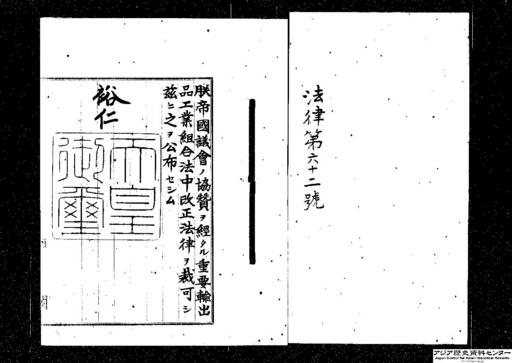 法律第六十二號
朕帝國議會ノ協贊ヲ經タル重要輸出
品工業組合法中改正法律ヲ裁可シ
玆ニ之ヲ公布セシム
裕仁
天皇
御璽
アジア歴史資料センター
Japan Center for Asian Historical Records